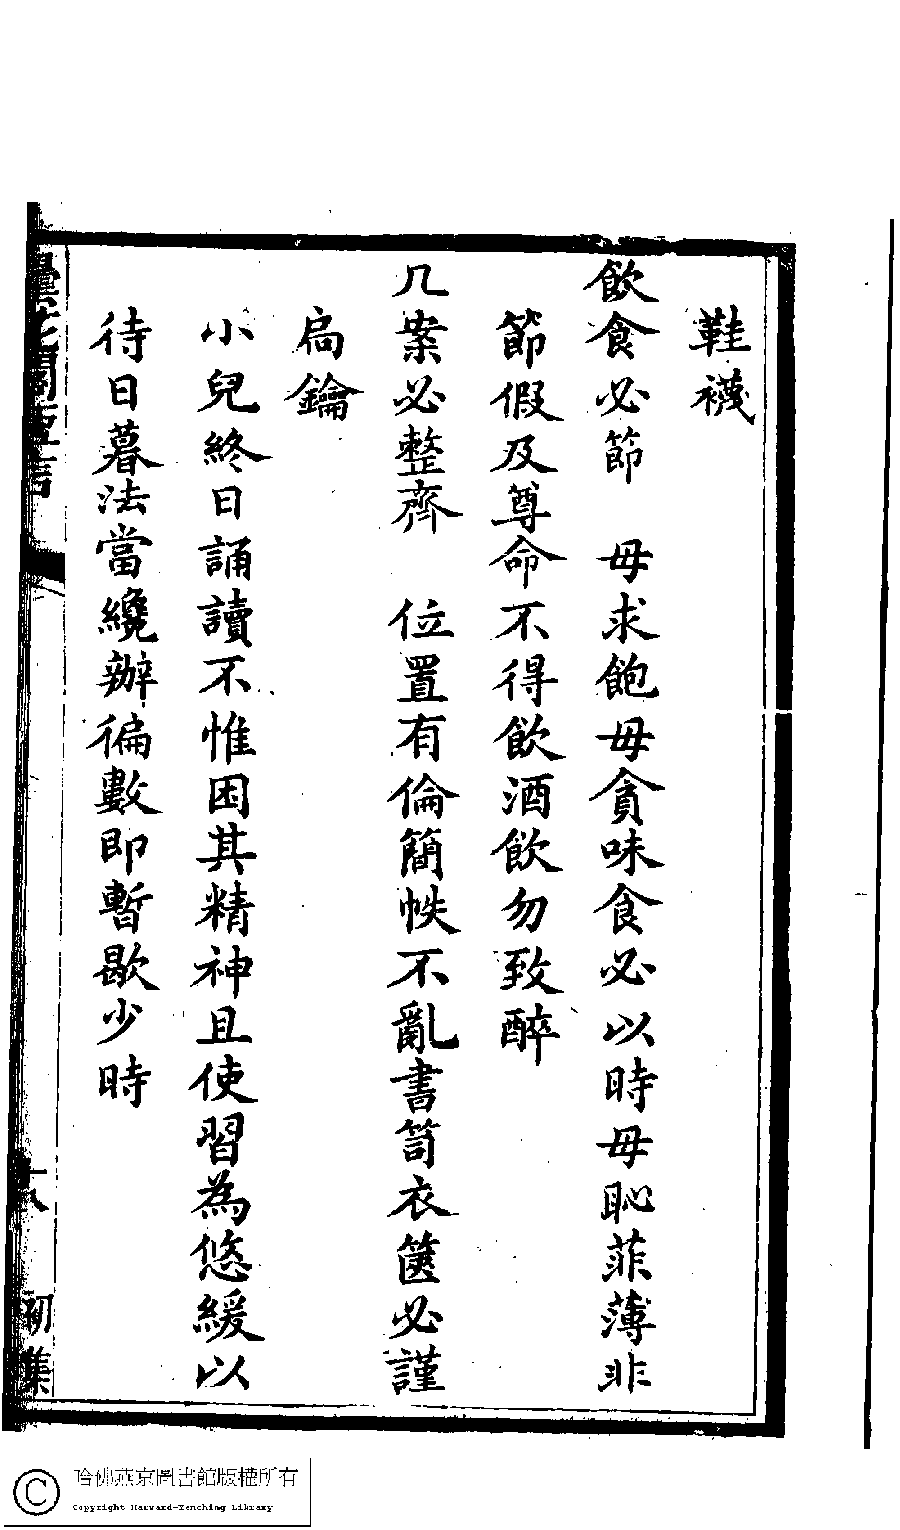 鞋襪
飲食必節　毋求飽毋貪味食必以時毋恥菲薄非
節假及尊命不得飲酒飲勿致醉
几案必整齊　位置有倫簡帙不亂書笥衣篋必謹
扃鑰
小兒終日誦讀不惟困其精神且使習為悠緩以
待日暮法當纔辦徧數即暫歇少時
十八　初集
哈佛燕京圖書館版權所有
Copyright Harvard-Yenching Library